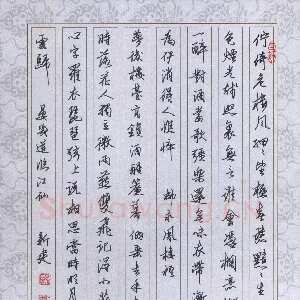 伫倚危楼风细细望极春愁黯黯生
色烟光残照里无言谁会凭阑
一醉对酒当歌强乐还无味衣带渐
为伊消得人憔悴 柳永凤栖梧
梦后楼台高锁酒醒帘幕低垂去年
时落花人独立微雨燕双飞记得小
心字罗衣琵琶弦上说相思当时明月
云归 晏几道临江仙